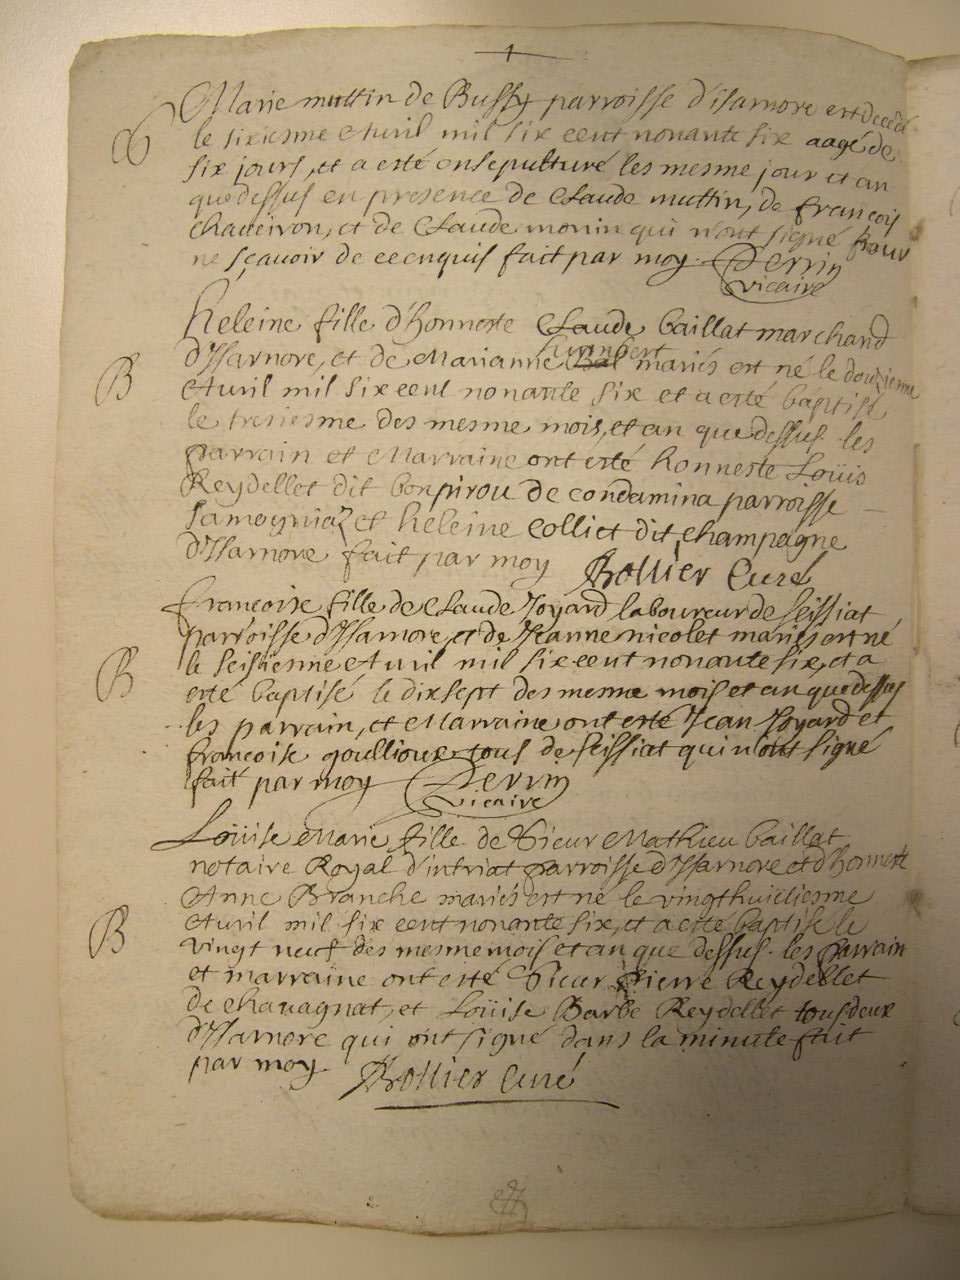 Marie muttin de Bussy parroisse d'isarnore est decedé
le sixiesme Avril mil six cent nonante six aagé de
six jours, et a esté ensepulturé les mesme jour et an
que dessus en presence de Claude muttin, de françois
et de Claude monin qui n'ont signé pour
ne sçavoir de ce enquis fait par moy. Perrin
vicaire
B
heleine fille d'honneste Claude baillat marchand
humbert
d'Isarnore, et de Marianne mariés est né le douzienme
Avril mil six cent nonante six et a esté baptisé
le tresiesme des mesme mois, et an que dessus les
parrain et Marraine ont esté honneste Loüis
Reydellet dit bonpirou de condamina parroisse
Samogniaz et heleine colliet dit champagne
d'Isarnore fait par moy Rollier Curé
B
françoise fille de Claude Joyard laboureur de seissiat
parroisse d'Isarnore, et de Jeanne nicolet mariés est né
le seisienme Avril mil six cent nonante six, et a
esté baptisé le dix sept des mesme mois et an que dessus
les parrain, et Marraine ont esté Jean Joyard et
françoise goullioux tous de seissiat qui n'ont signé
fait par moy Perrin
vicaire
B
Loüise Marie fille de Sieur Mathieu baillat
notaire Royal d'intriat parroisse d'Isarnore et d'honneste
Anne Branche mariés est né le vingt huictiesme
Avril mil six cent nonante six, et a esté baptisé le
vingt neuf des mesme mois et an que dessus. les parrain
et marraine ont esté Sieur Pierre Reydellet
de chavagnat, et Loüise Barbe Reydellet tous deux
d'Isarnore qui ont signé dans la minute fait
par moy. Rollier Curé